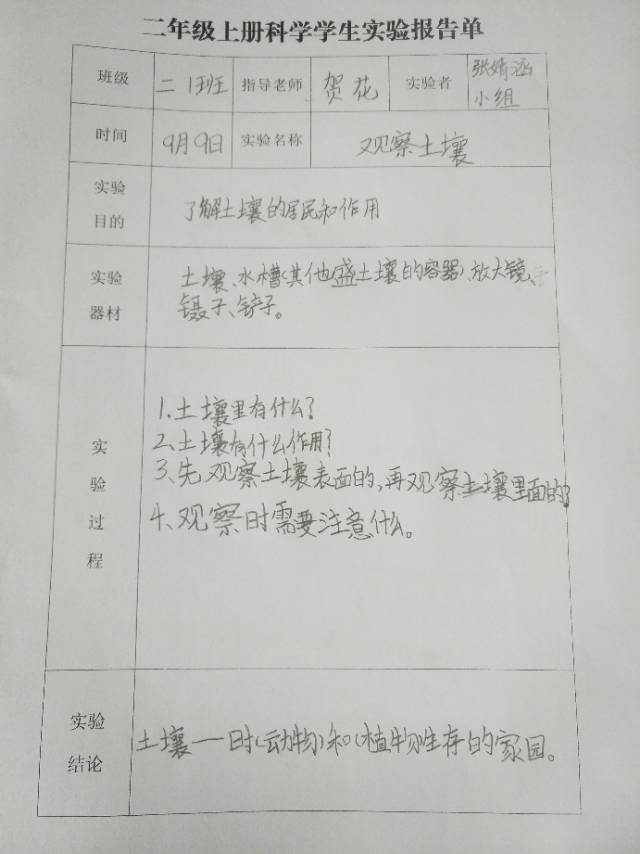 二年级上册科学学生实验报告单
班级 二 1班 指导老师 贺花 实验者 张婧涵
小组
时间 9月9日 实验名称 观察土壤
实验
目的
了解土壤的居民和作用
实验
器材
土壤、水槽(其他盛土壤的容器)、放大镜、
镊子、铲子。
实
验
过
程
1.土壤里有什么?
2.土壤有什么作用?
3、先观察土壤表面的,再观察土壤里面的?
4、观察时需要注意什么。
实验
结论
土壤一时(动物)和(植物)生存的家园。